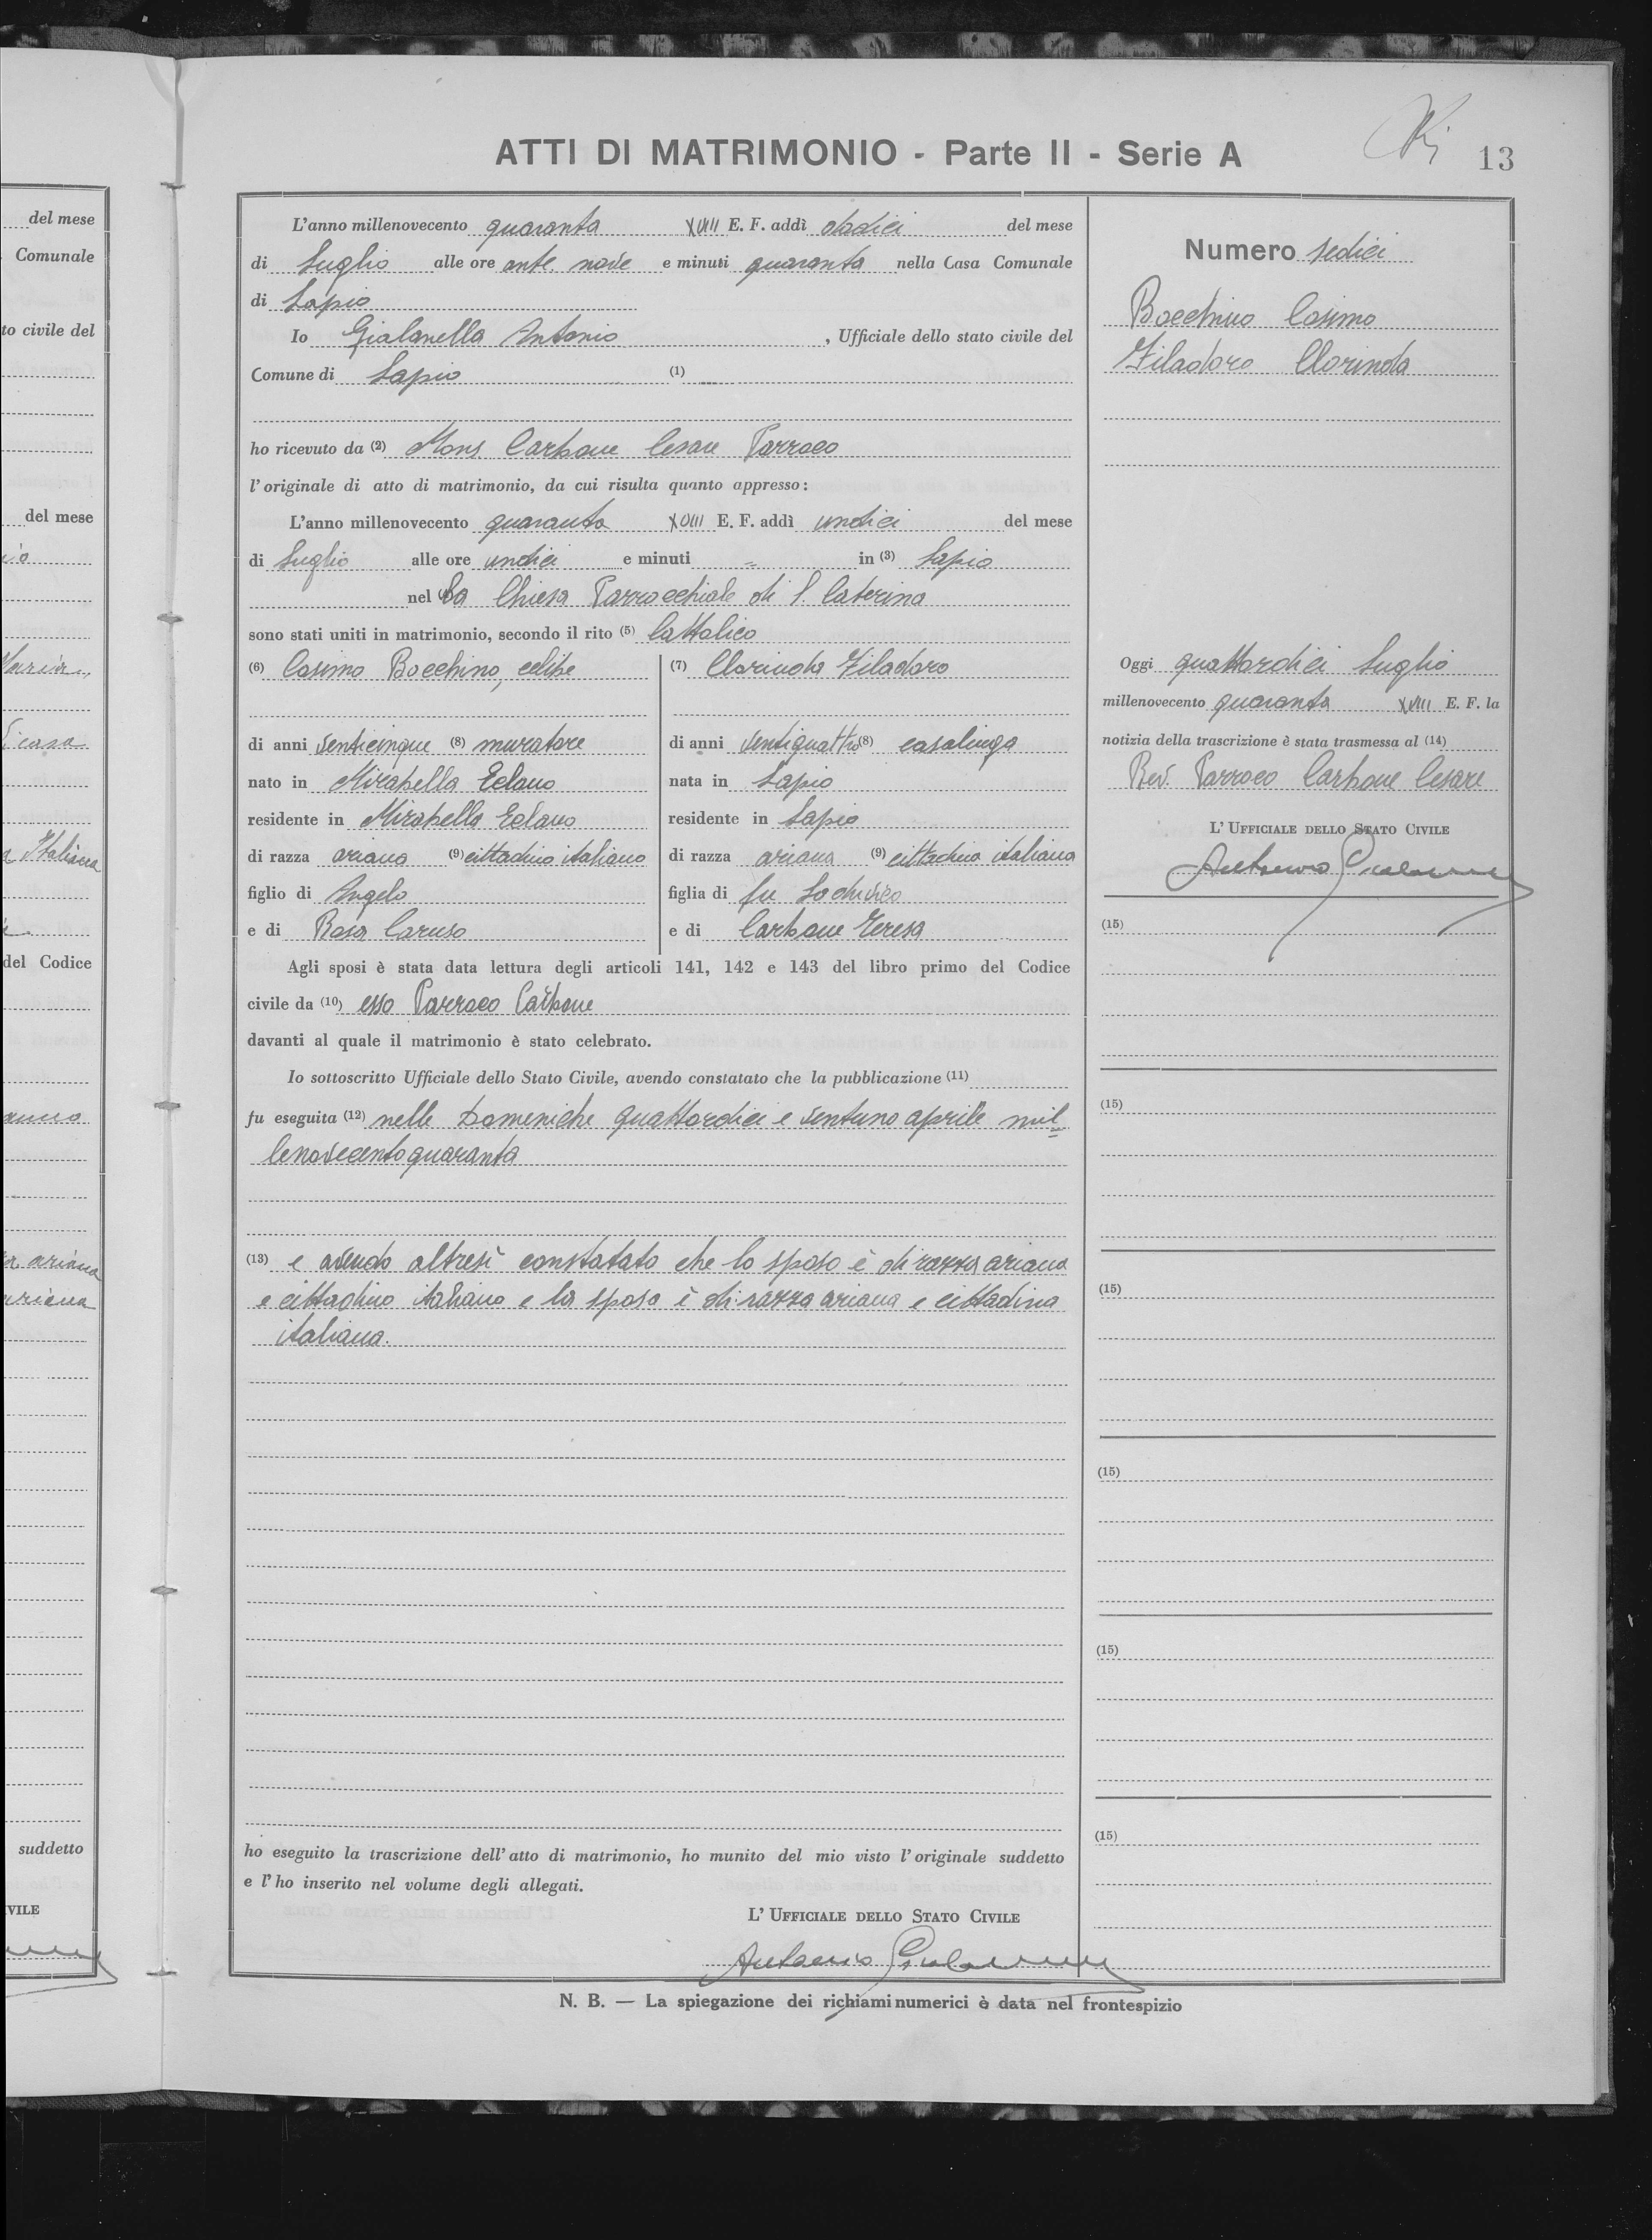 del mese
Comunale
to civile del
del mese
Maria,
casa
a Italiana
del Codice
ra ariana
ariana
suddetto
VILE
ATTI DI MATRIMONIO - Parte II - Serie A
13
L'anno millenovecento quaranta XVIII E. F. addì dodici del mese
di Luglio alle ore ante. nove e minuti quaranta nella Casa Comunale
di Lapio
Io Gialanella Antonio , Ufficiale dello stato civile del
Comune di Lapio (1)
ho ricevuto da (2) Mons. Carbone Cesare Parroco
l'originale di atto di matrimonio, da cui risulta quanto appresso:
L'anno millenovecento quaranta XVIII E. F. addì undici del mese
di Luglio alle ore undici e minuti = in (3) Lapio
nel la Chiesa Parrocchiale di S. Caterina
sono stati uniti in matrimonio, secondo il rito (5) Cattolico
(6) Cosimo Bocchino, celibe
di anni venticinque (8) muratore
nato in Mirabella Eclano
residente in Mirabella Eclano
di razza ariana (9) cittadino italiano
figlio di Angelo
e di Rosa Caruso
(7) Clorinda Filadoro
di anni ventiquattro (8) casalinga
nata in Lapio
residente in Lapio
di razza ariana (9) cittadina italiana
figlia di fu Lodovico
e di Carbone Teresa
Agli sposi è stata data lettura degli articoli 141, 142 e 143 del libro primo del Codice
civile da (10) esso Parroco Carbone
davanti al quale il matrimonio è stato celebrato.
Io sottoscritto Ufficiale dello Stato Civile, avendo constatato che la pubblicazione (11)
fu eseguita (12) nelle Domeniche quattordici e ventuno aprile mil=
lenovecentoquaranta
(13) e avendo altresì constatato che lo sposo è di razza ariana
e cittadino italiano e la sposa è di razza ariana e cittadina
italiana.
ho eseguito la trascrizione dell'atto di matrimonio, ho munito del mio visto l'originale suddetto
e l'ho inserito nel volume degli allegati.
L'UFFICIALE DELLO STATO CIVILE
Antonio Gialanella
Numero sedici
Bocchino Cosimo
Filadoro Clorinda
Oggi quattordici Luglio
millenovecento quaranta XVIII E. F. la
notizia della trascrizione è stata trasmessa al (14)
Rev. Parroco Carbone Cesare
L'UFFICIALE DELLO STATO CIVILE
Antonio Gialanella
(15)
(15)
(15)
(15)
(15)
(15)
N. B. — La spiegazione dei richiami numerici è data nel frontespizio